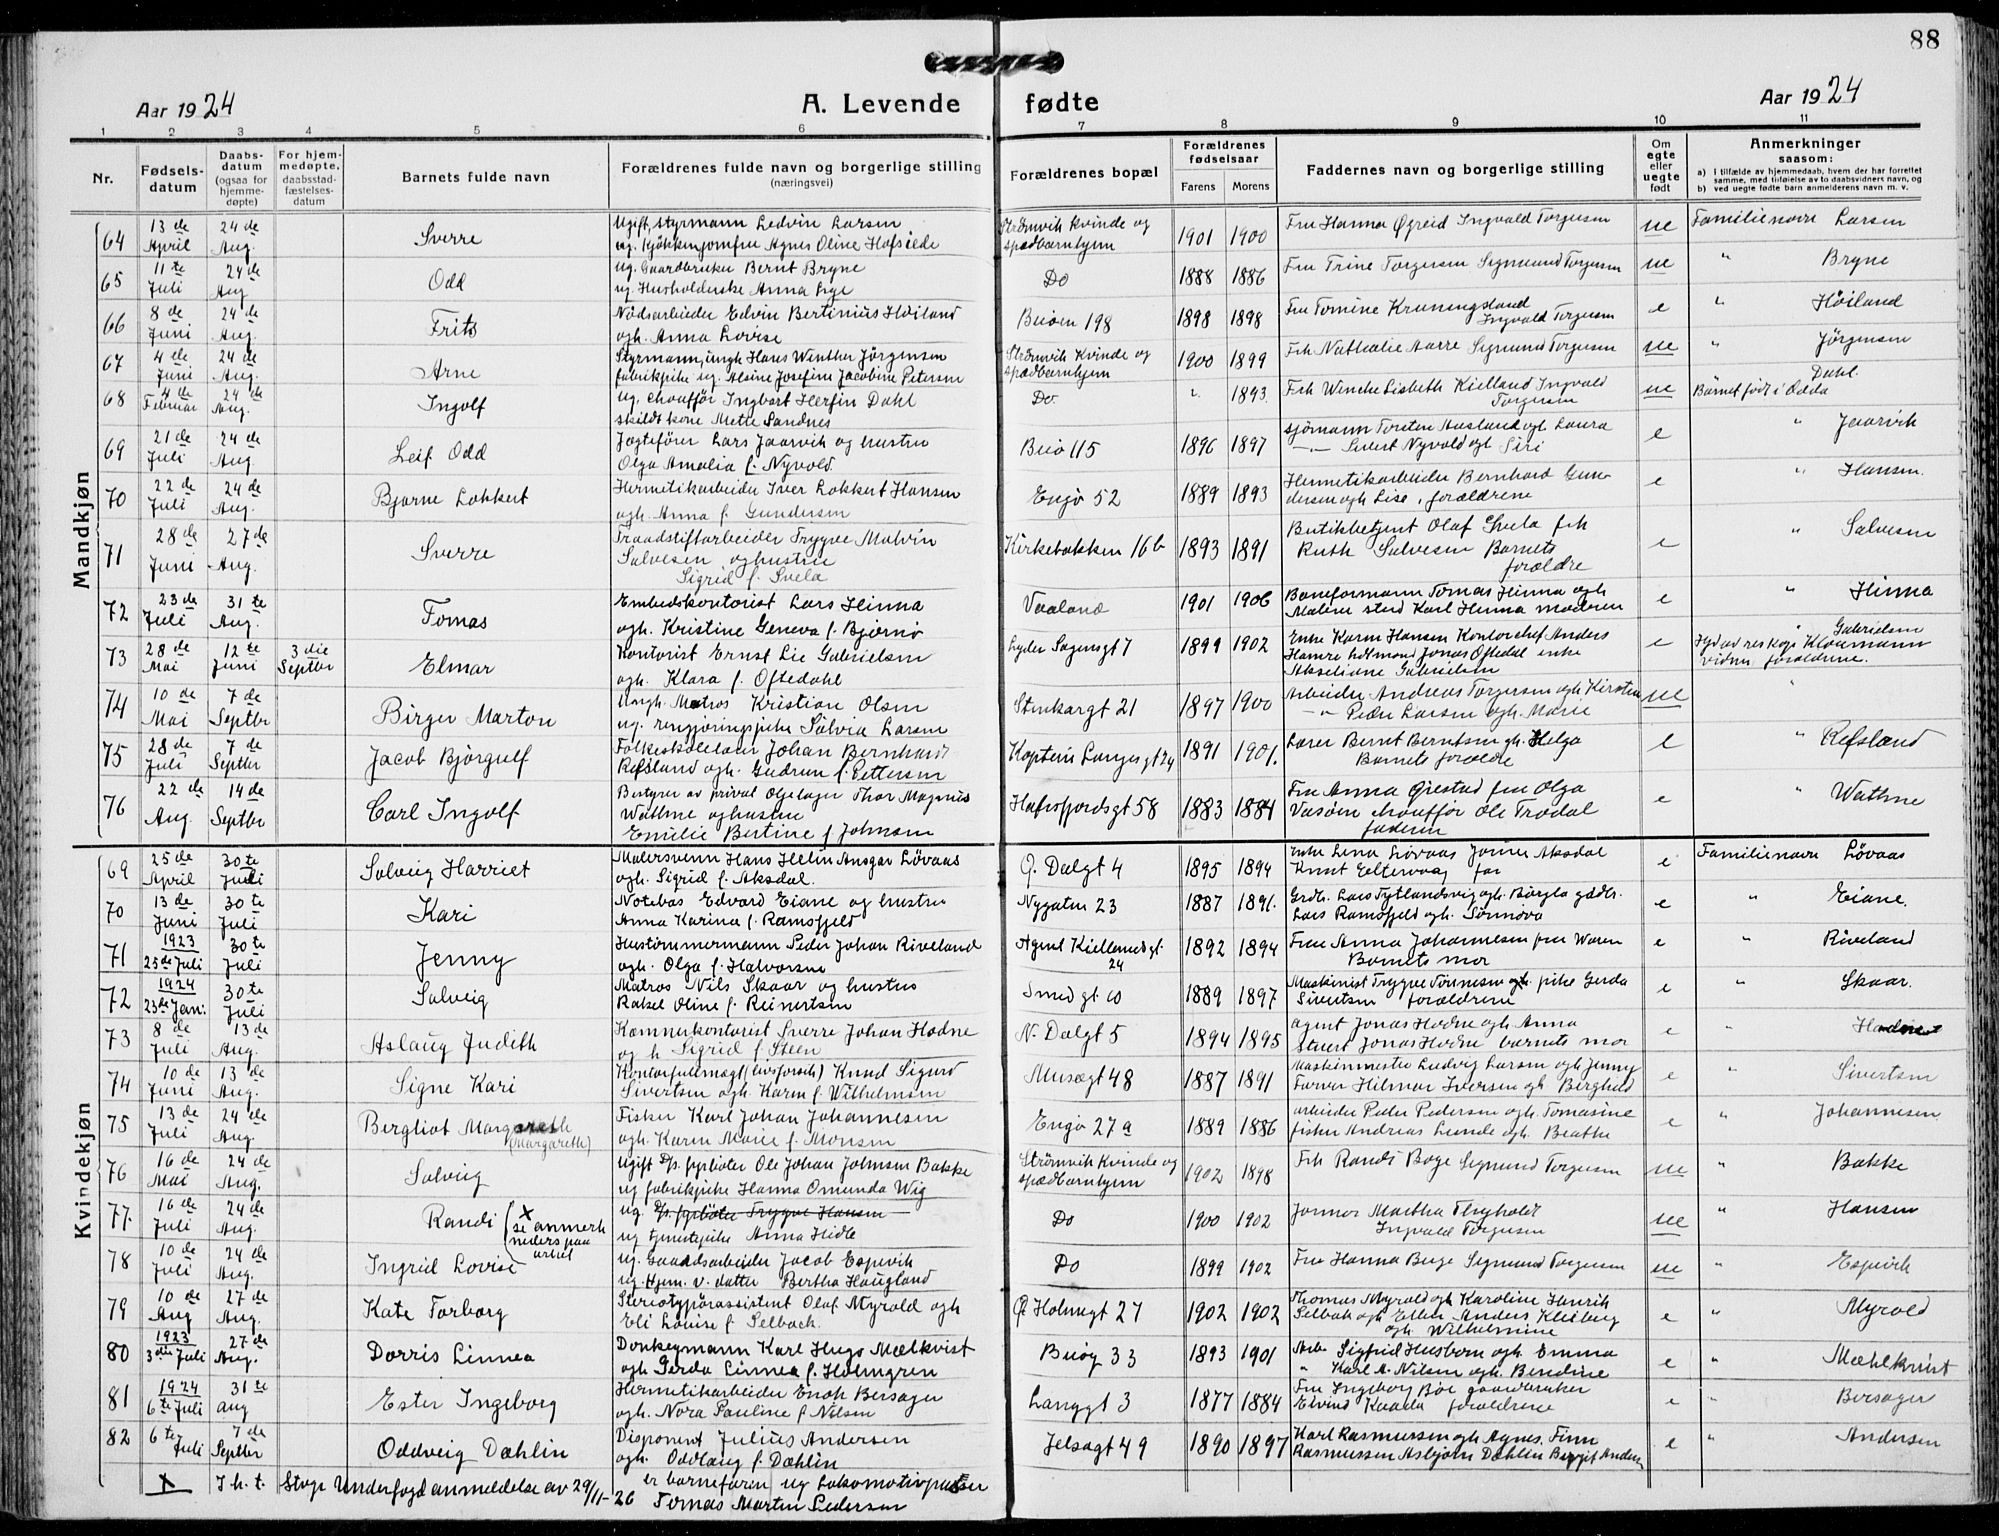 88
Aar 1924
A. Levende fødte
Aar 1924
1 2 3 4 5 6 7 8 9 10 11
Nr.
Fødsels-
datum
Daabs-
datum
(ogsaa for
hjemme-
døpte)
For hjem-
medøpte,
daabsstad-
fæstelses-
datum
Barnets fulde navn
Forældrenes fulde navn og borgerlige stilling
(næringsvei)
Forældrenes bopæl
Forældrenes
fødselsaar
Farens Morens
Faddernes navn og borgerlige stilling
Om
egte
eller
uegte
født
Anmerkninger
saasom:
a) I tilfælde av hjemmedaab, hvem der har forrettet
samme, med tilføielse av to daabsvidners navn, og
b) ved uegte fødte barn anmelderens navn m. v.
Mandkjøn
64 13 de April 24 de Aug. Sverre
Ugift styrmann Ledvin Larsen
ug. Kjøkkenjomfru Agnes Oline Hafsøe
Strømvik kvinde og
spædbarnhjem 1901 1900
Fru Hanna Øgreid Ingvald Torgersen
ue Familienavn Larsen
65 11 te Juli 24 de Aug Odd
ug. Gaardbruker Bernt Bryne
ug. Husholderske Anna Lye
Do 1888 1886
Fru Trine Torgersen Sigmund Torgersen
ue " Bryne
66 8 de Juni 24 de Aug. Frits
Nødsarbeider Edvin Bertinius Høiland
ogh. Anna Lovise
Buøen 198 1898 1898
Fru Tomine Kruningsland
Ingvald Torgersen
e " Höiland
67 4 de Juni 24 de Aug. Arne
Styrmann ungk Hans Winther Jörgensen
fabrikpike ug. Aleine Josefine Jacobine Petersen
Strømvik Kvinde og
spædbarnhjem 1900 1899
Frk Nathalie Aarre Sigmund Torgersen
ue " Jörgensen
68 4 de Februar 24 de Aug. Ingolf
ug. Chauffør Ingbart Herfin Dahl
skildt kone Mette Sandnes
Do. 1893.
Frk Wenche Lisbeth Kielland Ingvald
Torgersen
ue Barnet født i Odda Dahl.
69 21 de Juli 24 de Aug. Leif Odd
Jagtefører Lars Jaarvik og hustru
Olga Amalia f. Nyvold
Buø 115 1896 1897
sjømann Torsten Aasland ogh Laura
Sivert Nyvold ogh Siri
e " Jaarvik
70 22 de Juli 24 de Aug. Bjarne Lokkert
Hermetikarbeider Iver Lokkert Hansen
ogh. Anna f. Gundersen
Engø 52 1889 1893
Hermetikarbeider Bernhard Gun-
dersen ogh Lise, forældrene
e " Hansen.
71 28 de Juni 27 de Aug. Sverre
Traadstiftarbeider Trygve Malvin
Salvesen og hustru
Sigrid f. Svela
Kirkebakken 16 b 1893 1891
Butikbetjent Olaf Svela frk
Ruth Salvesen Barnets
forældre
e " Salvesen
72 23 de Juli 31 te Aug. Tomas
Embedskontorist Lars Hinna
ogh. Kristine Geneva f. Bjørnø
Vaaland 1901 1906
Baneformann Tomas Hinna ogh
Malene stud Karl Hinna moderen
e " Hinna
73 28 de Mai 12 te Juni 3 die Septbr Elmar
Kontorist Ernst Lie Gabrielsen
ogh. Klara f. Oftedahl
Lyder Sagensgt 7 1899 1902
Enke Karen Hansen Kontorchef Anders
Hamre Jonas Oftedal enke
Akseliane Gabrielsen
e Gabrielsen
Hjd av res kap Kloumann
vidner forældrene.
74 10 de Mai 7 de Septbr Birger Marton
Ungk. Matros Kristian Olsen
ug. rengjøringspike Solvia Larsen
Stenkargt 21 1897 1900
Arbeider Andreas Torgersen ogh Kirsten
Peder Larsen ogh. Marie
ue "
75 28 de Juli 7 de Septbr Jacob Bjørgulf
Folkeskolelærer Johan Bernhard
Refsland ogh. Gudrun f. Pettersen
Kaptein Langes gt 24 1891 1901.
Lærer Bernt Berntsen gh. Helga
Barnets forældre
e " Refsland
76 22 de Aug. 14 de Septbr Carl Ingolf
Bestyrer av privat Oljelager Thor Magnus
Wathne og hustru
Emilie Bertine f. Johnsen
Hafrsfjordsgt 58 1883 1884
Fru Anna Ørestad fru Olga
Vasøen chauffør Ole Trodal
faderen
e " Wathne
Kvindekjøn
69 25 de April 30 te Juli Solveig Harriet
Malersvenn Hans Helin Ansgar Lövaas
ogh. Sigrid f. Aksdal.
Ø. Dalgt 4 1895 1894
Enke Lena Løvaas Jomfr Aksdal
Knut Eltervaag far
e Familienavn Lövaas
70 13 de Juni 30 te Juli Kari
Notebas Edvard Eiane og hustru
Anna Karina f. Ramsfjeld
Nygaten 23 1887 1891.
Grdbr. Lars Tytlandsvig ogh. Børgla gddbr.
Lars Ramsfjeld ogh. Sørinova
e " Eiane.
71 1923 25 de Juli 30 te Juli Jenny
Hustömmermann Peder Johan Riveland
ogh. Olga f. Halvorsen
Agent Kiellandsgt.
24 1892 1894
Fru Anna Johannesen fru Waren
Barnets mor
e " Riveland
72 1924 23 de Jan: 30 te Juli Solveig
Matros Nils Skaar og hustru
Rakel Oline f. Reinertsen
Smedgt 10 1889 1897
Maskinist Trygve Tønnesen ogh. pike Gerda
Sivertsen forældrene
e " Skaar.
73 8 de Juli 13 de Aug. Aslaug Judith
Kæmnerkontorist Sverre Johan Hodne
og h Sigrid f Steen
N. Dalgt 5 1894 1895
Agent Jonas Hodne ogh Anna
Stuert Jonas Hodne barnets mor
e " Hodne
74 10 de Juni 13 de Aug. Signe Kari
Kontorfuldmægt (livsforsik) Knud Sigurd
Sivertsen ogh. Karen f Wilhelmsen
Musegt 48 1887 1891
Maskinmester Ludvig Larsen ogh Jenny
Farver Hilmar Iversen ogh Berghild
e " Sivertsen
75 13 de Juli 24 de Aug. Bergliot Margareth
(Margareth)
Fisker Karl Johan Johannesen
ogh. Karen Marie f Monsen
Engø 27 a 1889 1886
arbeider Peder Pedersen ogh. Tomasine
fisker Andreas Lunde ogh. Beathe
e " Johannesen
76 16 de Mai 24 de Aug. Solveig
Ugift D/s fyrbøter Ole Johan Johnsen Bakke
ug fabrikpike Hanna Omunda Wig
Strømvik Kvinde og
spædbarnhjem 1902 1898
Frk Randi Bøge Sigmund Torgersen
ue " Bakke
77. 16 de Juli 24 de Aug. Randi
X se anmerk
nederst paa
arket
ug. D/s fyrbøter Trygve Hansen
ug tjenestpike Anna Hidle
Do 1900 1902
Jomfr Martha Thyholdt
Ingvald Torgersen
ue " Hansen
78 10 de Juli 24 de Aug. Ingrid Lovise
ug. Gaardsarbeider Jacob Espevik
ug. Hjem. v. datter Bertha Haugland
Do 1899 1902
Fru Hanna Berge Sigmund Torgersen
ue " Espevik
79 10 de Aug 27 de Aug. Kate Torborg
Stereotypørassistent Olaf Myrold ogh
Eli Louise f Selbach.
Ø. Holmegt 27 1902 1902
Thomas Myrold ogh Karoline Henrik
Selbak ogh Ellen Anders Kleiberg
ogh. Wilhelmine
e " Myrold
80 1923 3 die Juli 27 de Aug. Dorris Linnea
Donkeymann Karl Hugo Mælkvist
ogh Gerda Linnea f Holmgren
Buøy 33 1893 1901
Arb. Sigfrid Husborn ogh Emma
" Karl A. Nilsen ogh Bendine
e " Mæhlkvist
81 1924 6 te Juli 31 te aug Ester Ingeborg
Hermetikarbeider Enok Bersager
ogh. Nora Pauline f Nilsen
Langgt 3 1877 1884
Fru Ingeborg Bøe gaardbruker
Eivind Kaada forældrene
e " Bersager
82 6 te Juli 7 de Septbr Oddveig Dæhlin
Disponent Julius Andersen
ogh. Oddlaug f. Dæhlin
Jelsagt 49 1890 1897
Karl Rasmussen ogh Agnes, Finn
Rasmussen Asbjørn Dæhlin Bergit Andersen
e " Andersen
X I h. t. Stvgr Underfogd anmeldelse av 29/11-26 er barnefaren ug Lokomotivpusser
Tomas Martin Pedersen